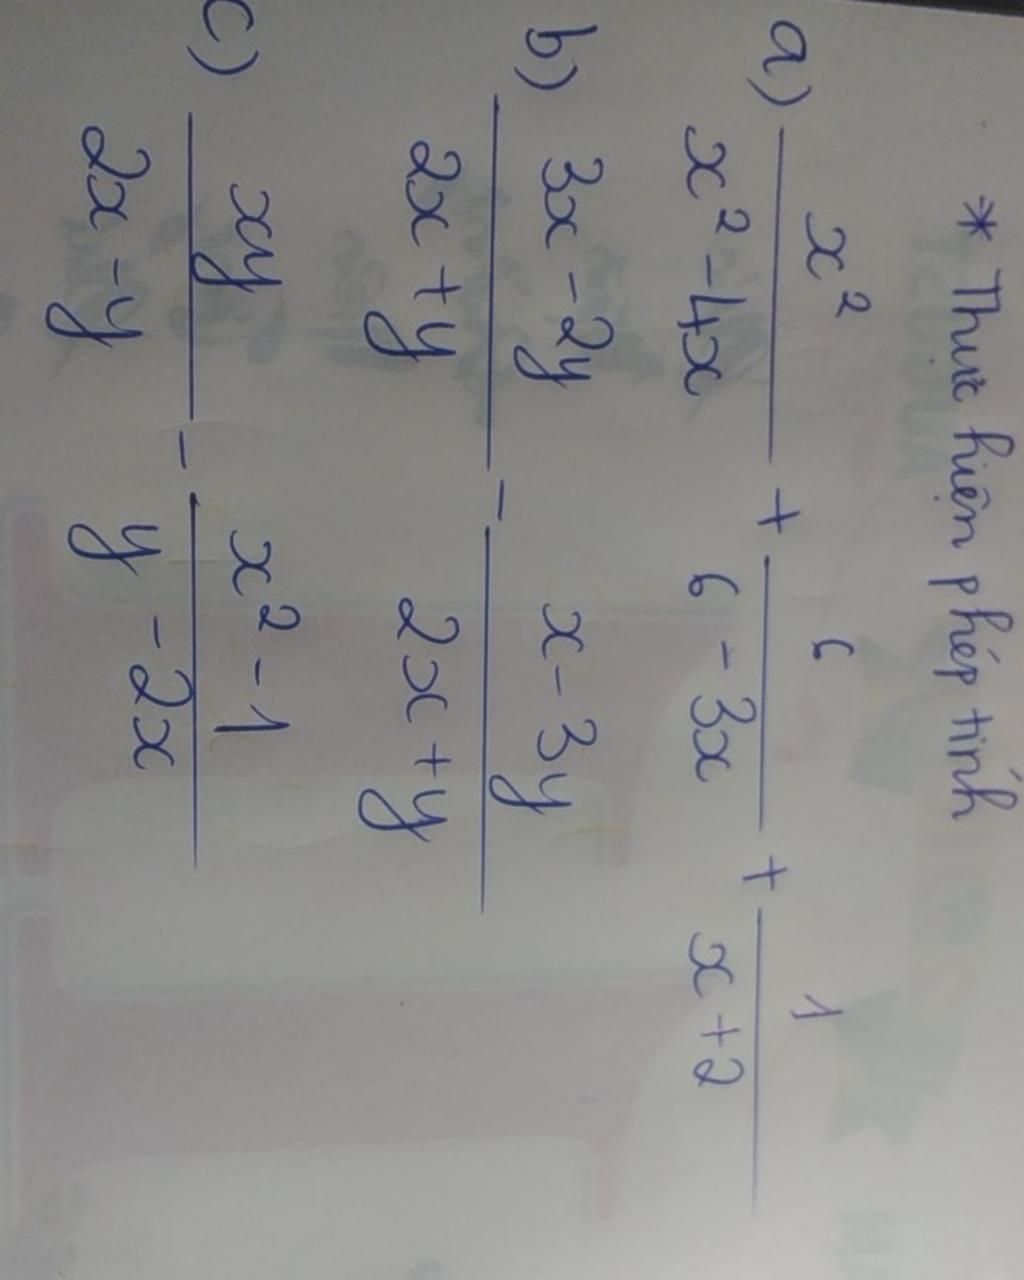 * Thực hiện phép tính
a) x²/(x² - 4x) + 6/(6 - 3x) + 1/(x + 2)
b) (3x - 2y)/(2x + y) - (x - 3y)/(2x + y)
c) xy/(2x - y) - (x² - 1)/(y - 2x)